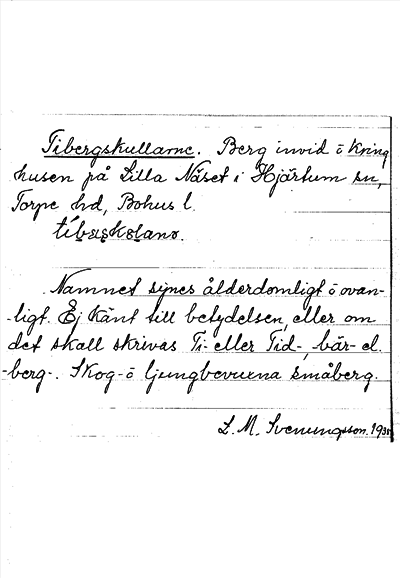 Tibergskullarne. Berg invid o kring
husen på Lilla Näset i Hjärtum sn,
Torpe hd, Bohus l.
Namnet synes ålderdomligt o ovan-
-ligt. Ej känt till betydelsen, eller om
det skall skrivas Ti- eller Tid-, bär- el.
-berg-. Skog- o ljungbevuxna småberg.
L. M. Svenungsson. 193